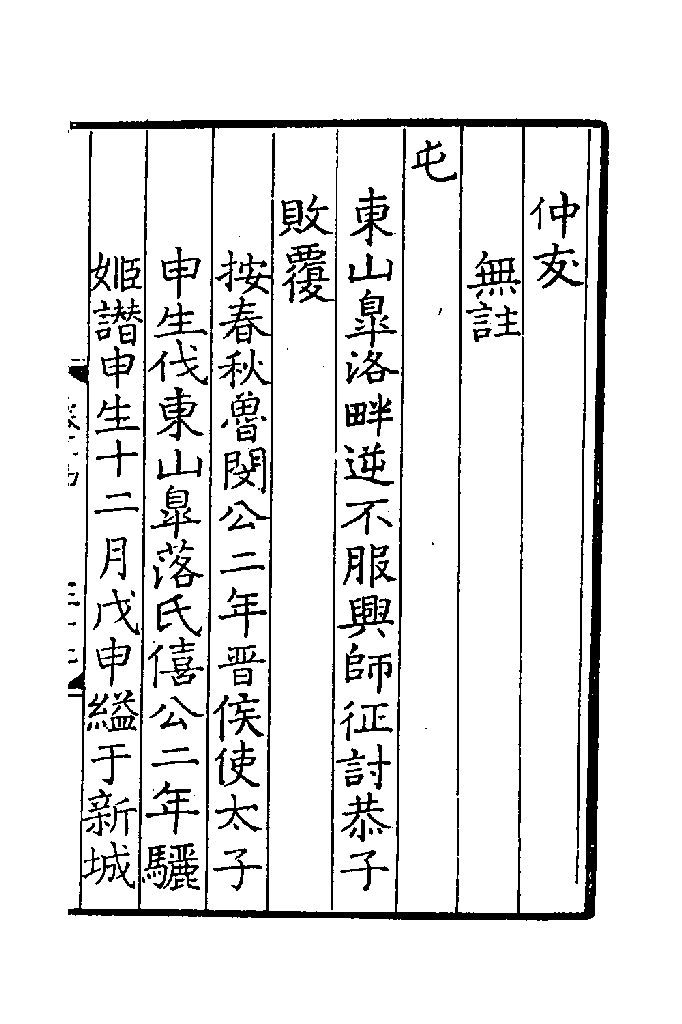 仲友
無註
屯
東山皐洛畔逆不服興師征討恭子
敗覆
按春秋魯閔公二年晋侯使太子
申生伐東山皐落氏僖公二年驪
姬譖申生十二月戊申縊于新城